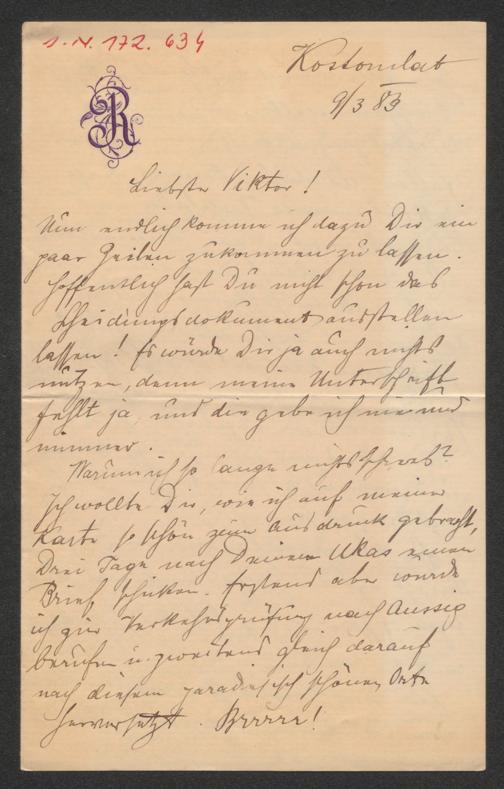 I.N. 172.634
Kostomlat
9/3 83
R
Liebster Viktor!
Nun endlich komme ich dazu Dir ein
paar Zeilen zukommen zu lassen.
Hoffentlich hast Du nicht schon das
Scheidungsdokument ausstellen
lassen! Es würde Dir ja auch nichts
nützen, denn meine Unterschrift
fehlt ja, und die gebe ich nie und
nimmer.
Warum ich so lange nichts schrieb?
Ich wollte Dir, wie ich auf meiner
Karte so schön zum Ausdruck gebracht,
Drei Tage nach Deinem Ukas einen
Brief schicken. Erstens aber wurde
ich zur Verkehrsprüfung nach Aussig
berufen u. zweitens gleich darauf
nach diesem paradiesisch schönen Orte
hierversetzt. Brrrrr!